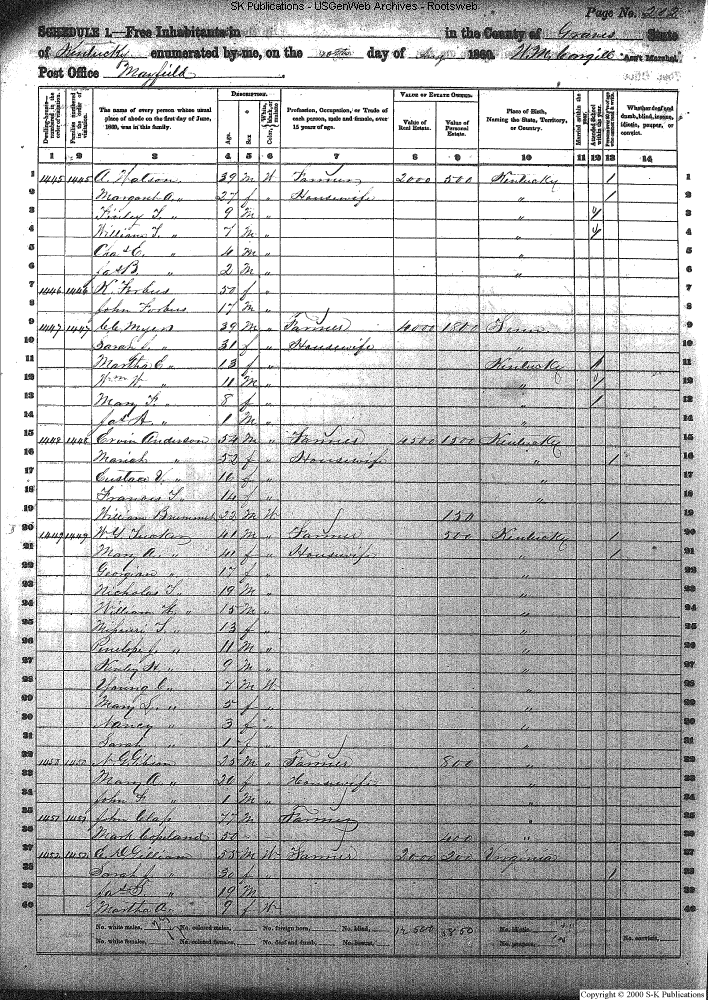 SK Publications - USGenWeb Archives - Rootsweb
Page No.
SCHEDULE 1.—Free Inhabitants in in the County of Graves State
of Kentucky enumerated by me, on the day of 1860. Ass't Marshal.
Post Office Mayfield
Dwelling-house—numbered in the order of visitation. Families numbered in the order of visitation. The name of every person whose usual place of abode on the first day of June, 1860, was in this family. DESCRIPTION. Age. Sex Color, White, black, or mulatto Profession, Occupation, or Trade of each person, male and female, over 15 years of age. VALUE OF ESTATE OWNED. Value of Real Estate. Value of Personal Estate. Place of Birth, Naming the State, Territory, or Country. Married within the year. Attended School within the year. Whether deaf and dumb, blind, insane, idiotic, pauper, or convict.
1 2 3 4 5 6 7 8 9 10 11 12 13 14
1 1445 1445 A. Watson 39 M W Farmer 2000 500 Kentucky / 1
2 Margaret A. " 27 f " Housewife " / 2
3 Finley T. " 9 M " " 3
4 William T. " 7 M " " 4
5 Chas E. " 4 M " " 5
6 Jas B. " 2 M " " 6
7 1446 1446 K. Forbus 50 f " 7
8 John Forbus 17 M " 8
9 1447 1447 C.C. Myers 39 M " Farmer 4000 1800 Tenn 9
10 Sarah " 31 f " Housewife " 10
11 Martha C. " 13 f " Kentucky 11
12 Wm H. " 11 M " " 12
13 Mary F. " 8 f " " 13
14 Jas A. " 1 M " " 14
15 1448 1448 Ervin Anderson 54 M " Farmer 4500 1500 Kentucky 15
16 Mariah " 52 f " Housewife " / 16
17 Eustace V. " 16 f " " 17
18 Frances T. " 14 f " " 18
19 William Brummet 22 M W 150 19
20 1449 1449 W Y Tucker 41 M " Farmer 500 Kentucky / 20
21 Mary A. " 41 f " Housewife " / 21
22 Georgan " 17 f " " 22
23 Nicholas T. " 19 M " " 23
24 William H. " 15 M " " 24
25 Missouri T. " 13 f " " 25
26 Penelope " 11 M " " 26
27 " 9 M " " 27
28 Young C. " 7 M W " 28
29 Mary " 5 f " " 29
30 Nancy " 3 f " " 30
31 Sarah " 1 f " " 31
32 1450 1450 N G Gibson 25 M " Farmer 800 " 32
33 Mary A. " 20 f " Housewife " 33
34 John F. " 1 M " " 34
35 1451 1451 John Clap 77 M " Farmer " 35
36 Mark Copeland 50 400 " 36
37 1452 1452 Gilliam 55 M W Farmer 2000 200 Virginia 37
38 Sarah " 30 f " / 38
39 Jas " 19 M 39
40 Martha A. " 9 f W 40
No. white males, No. colored males, No. foreign born, No. blind, 12500 No. idiotic,
No. white females, No. colored females, No. deaf and dumb, No. insane, No. paupers, No. convicts,
Copyright © 2000 S-K Publications